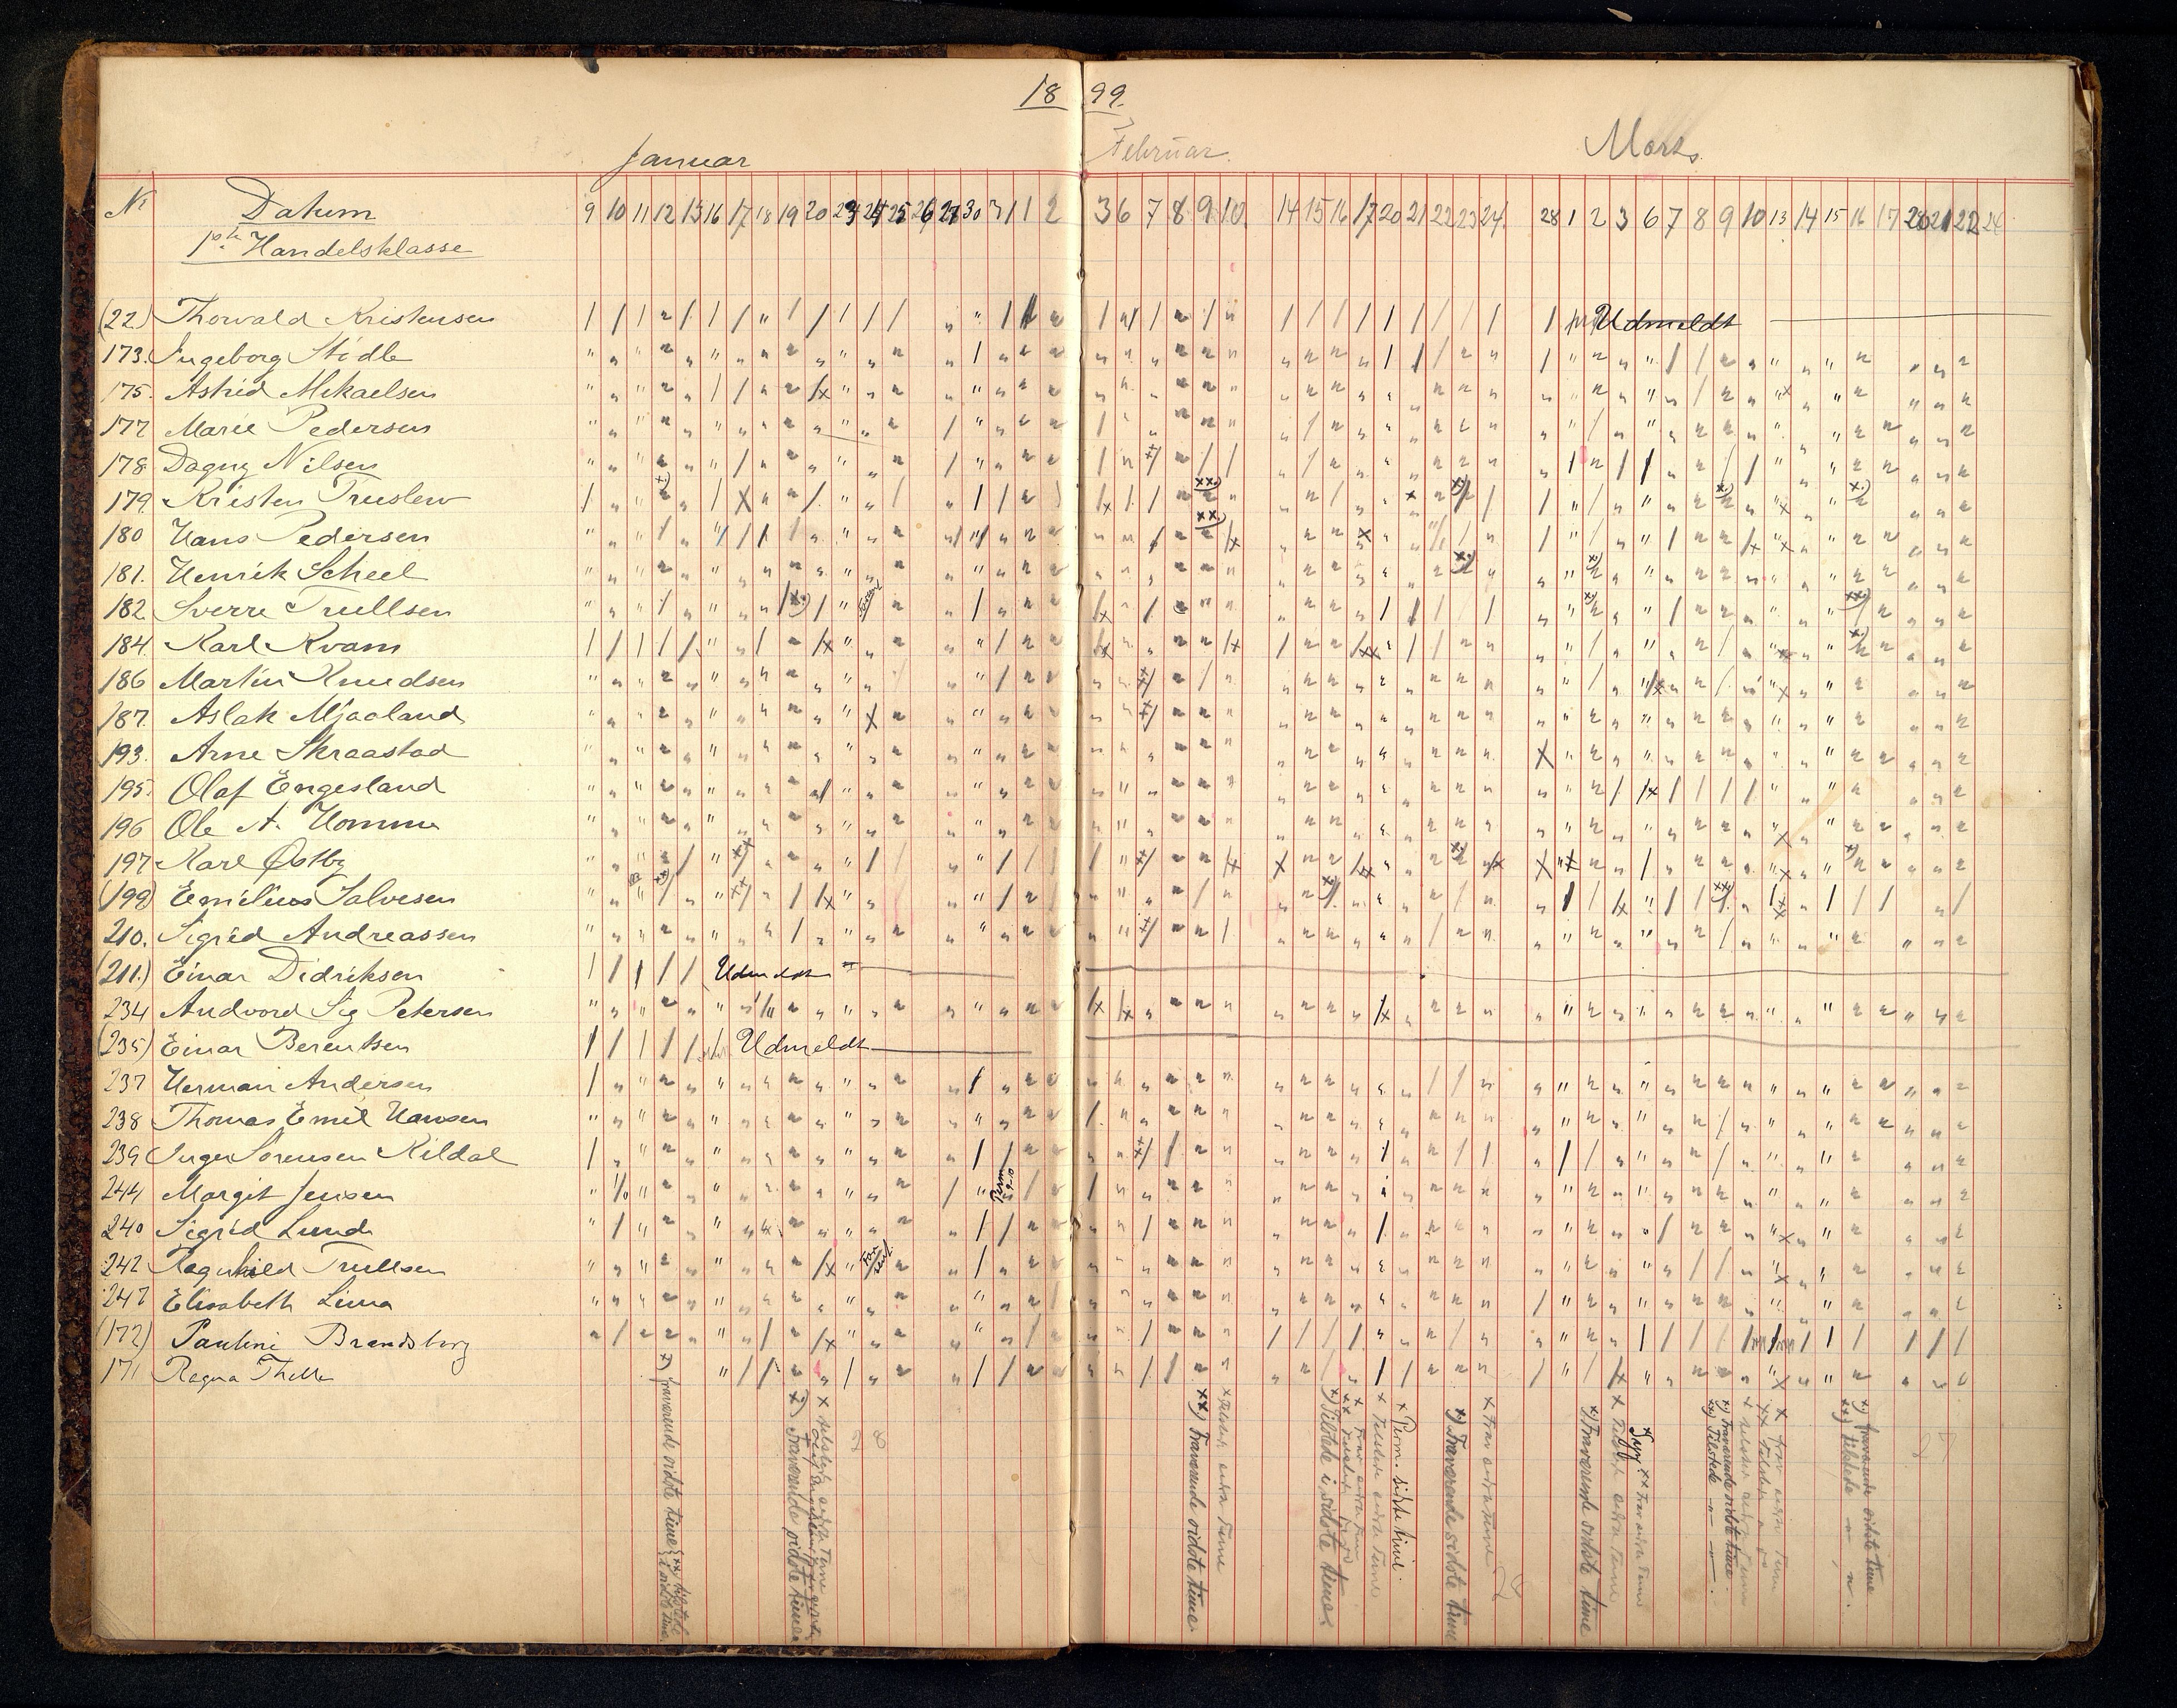 1899.
Januar Februar. Marts.
No Datum 9 10 11 12 13 16 17 18 19 20 23 24 25 26 27 30 31 1 2 3 6 7 8 9 10. 14 15 16 17 20 21 22 23 24. 28 1 2 3 6 7 8 9 10 13 14 15 16 17 20 21 22 24
1ste Handelsklasse
(22) Thorvald Kristensen Udmeldt
173. Ingeborg Stödle
175. Astrid Mikaelsen
177 Marie Pedersen
178 Dagny Nilsen
179 Kristen Truslew
180 Hans Pedersen
181. Henrik Scheel
182 Sverre Trullsen
184 Karl Kvam
186 Martin Knudsen
187. Aslak Mjaaland
193. Arne Skraastad
195. Olaf Engesland
196 Ole A. Homme
197 Karl Østby
(199) Emilius Salvesen
210. Sigrid Andreassen
(211.) Einar Didriksen Udmeldt
234 Andvord Sig Petersen
(235) Einar Berentsen Udmeldt
237 Herman Andersen
238 Thomas Emil Hansen
239 Inger Sørensen Kildal
244 Margit Jensen Perm 9-10
240 Sigrid Lund
242 Ragnhild Trullsen
247 Elisabeth Lima
(172) Pauline Brandsborg
171 Ragna Thelle
x) fraværende sidste time
xx) tilstede i sidste time
x) Fraværende sidste time
x tilstede extra time
28
xx) Fraværende sidste time
x tilstede extra time
x) Tilstede i sidste time
x Tilstede extra time
x Perm. sidste time.
x) Fraværende sidste time
x Fra extra time
x) Fraværende sidste time
x Tilstede extra time
Syg xx Fra extra time
x) Fraværende sidste time
xx) Tilstede — " — " — .
x fra extra time
x) fraværende sidste time
xx) tilstede — " — " .
27